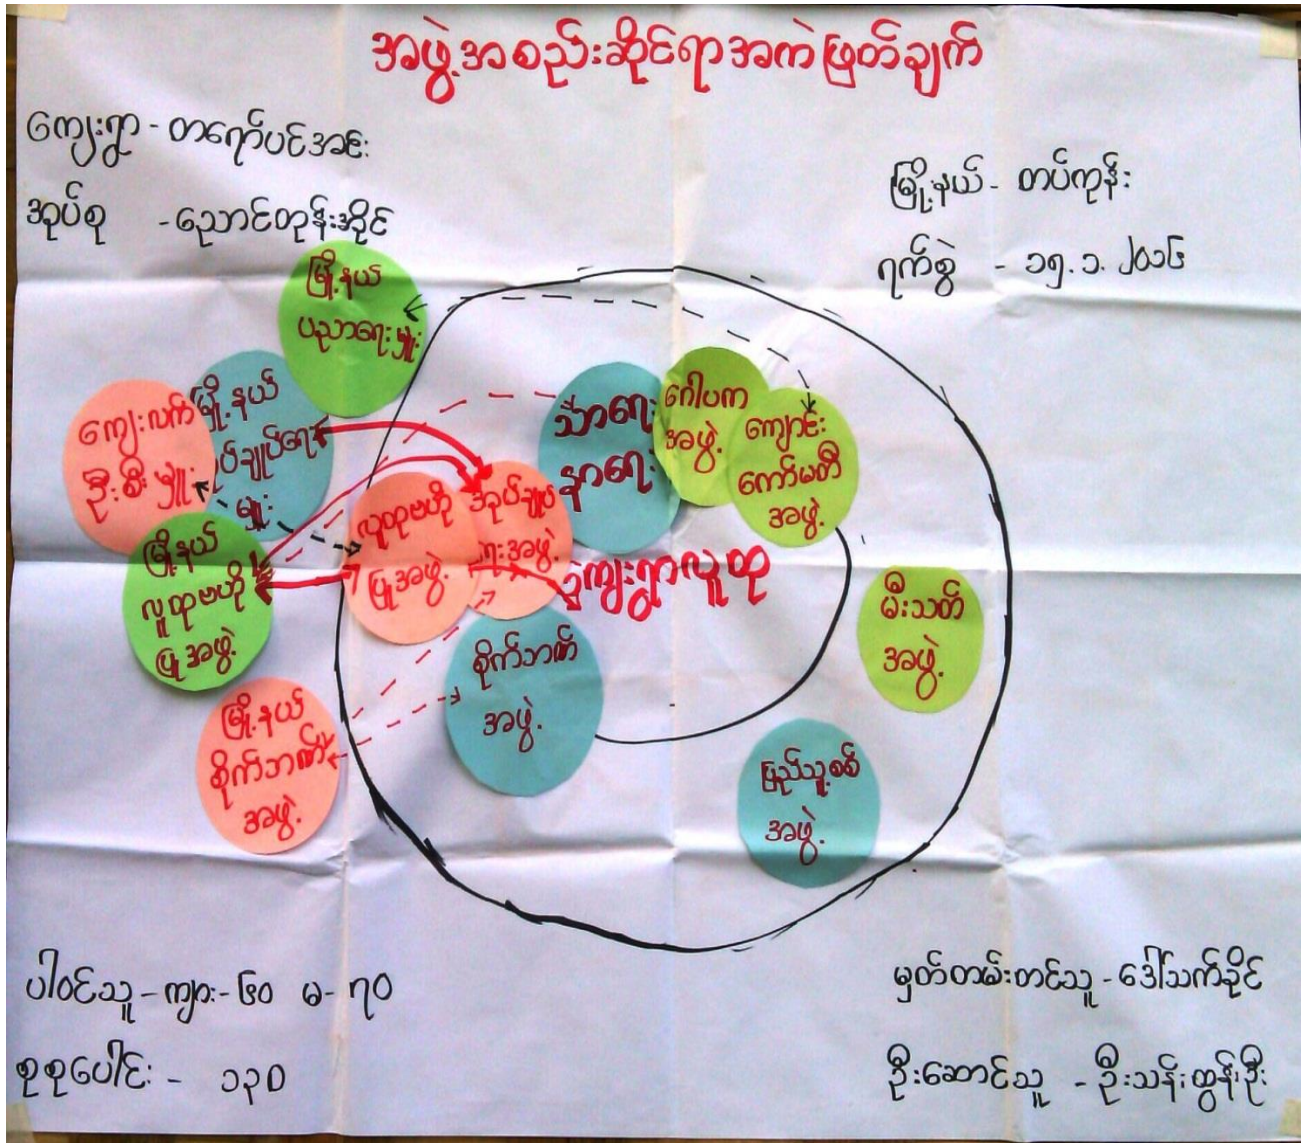 အဖွဲ့အစည်းဆိုင်ရာအကဲဖြတ်ချက်
ကျေးရွာ - တရော်ပင်အအေး
အုပ်စု - ညောင်တုန်းအိုင်
မြို့နယ် - တပ်ကုန်း
ရက်စွဲ - ၁၅.၁.၂၀၁၆
မြို့နယ်
ပညာရေးမှူး
ကျေးလက်
ဦးစီးမှူး
မြို့နယ်
ပ်ချုပ်ရေး
မှူး
မြို့နယ်
လူထုဗဟို
ပြုအဖွဲ့
မြို့နယ်
စိုက်ဘဏ်
အဖွဲ့
လူထုဗဟို
ပြုအဖွဲ့
အုပ်ချုပ်
ရေးအဖွဲ့
သာရေး
နာရေး
ဂေါပက
အဖွဲ့
ကျောင်း
ကော်မတီ
အဖွဲ့
ကျေးရွာလူထု
စိုက်ဘဏ်
အဖွဲ့
မီးသတ်
အဖွဲ့
ပြည်သူ့စစ်
အဖွဲ့
ပါဝင်သူ - ကျား - ၆၀ မ - ၇၀
စုစုပေါင်း - ၁၃၀
မှတ်တမ်းတင်သူ - ဒေါ်သက်ခိုင်
ဦးဆောင်သူ - ဦးသန်းထွန်းဦး